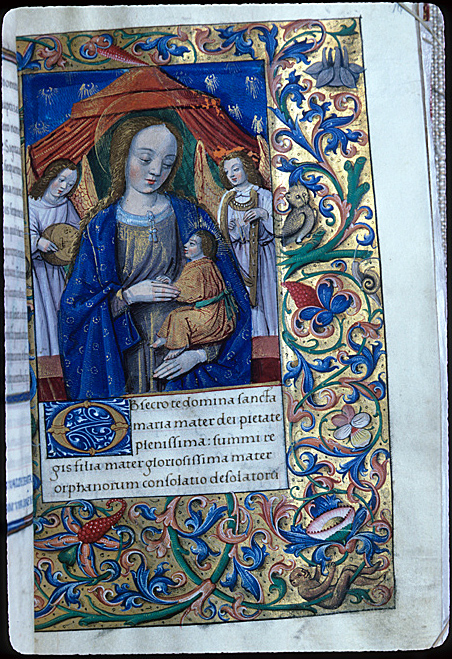 Obsecro te domina sancta
maria mater dei pietate
plenissima: summi re
gis filia mater gloriosissima mater
orphanorum consolatio desolatorū